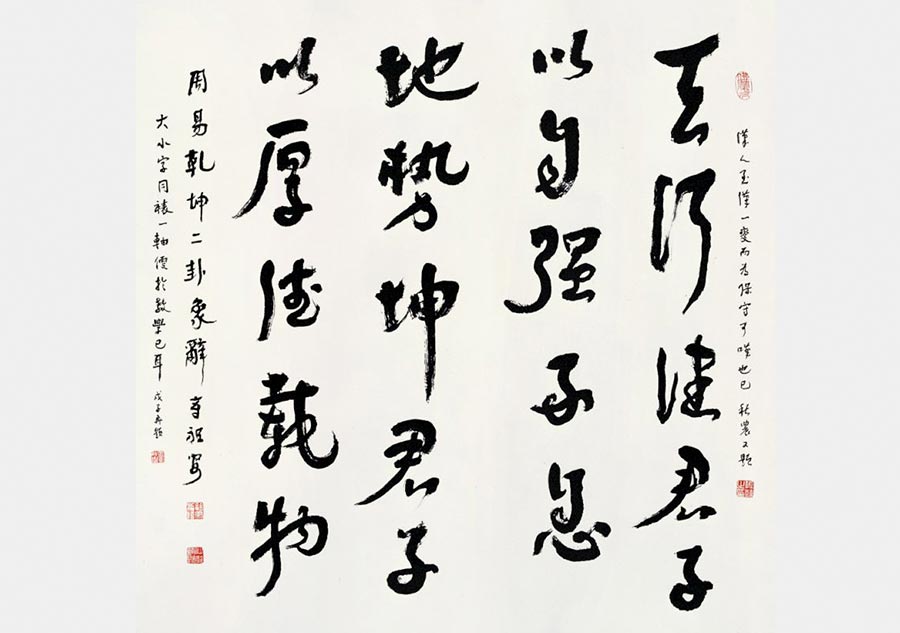 人至漢一變而為保守可嘆也已 又題
天行健君子
以自强不息
地勢坤君子
以厚德載物
周易乾坤二卦象辭
大小字同裱一軸便於教學已耳 戊子